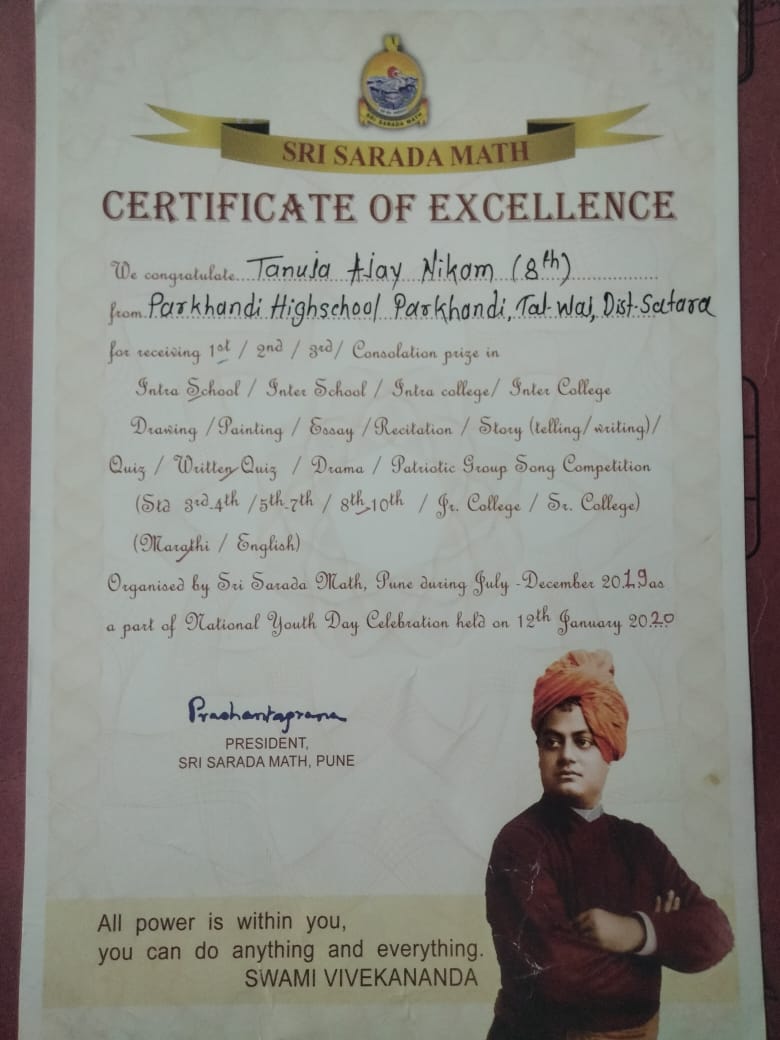 SRI SARADA MATH
SRI SARADA MATH
CERTIFICATE OF EXCELLENCE
We congratulate Tanuja Ajay Nikam (8th)
from Parkhandi Highschool Parkhandi, Tal-Wai, Dist-Satara
for receiving 1st / 2nd / 3rd / Consolation prize in
Intra School / Inter School / Intra college / Inter College
Drawing / Painting / Essay / Recitation / Story (telling/writing) /
Quiz / Written Quiz / Drama / Patriotic Group Song Competition
(Std 3rd-4th / 5th-7th / 8th-10th / Jr. College / Sr. College)
(Marathi / English)
Organised by Sri Sarada Math, Pune during July - December 2019 as
a part of National Youth Day Celebration held on 12th January 2020
Prashantaprana
PRESIDENT,
SRI SARADA MATH, PUNE
All power is within you,
you can do anything and everything.
SWAMI VIVEKANANDA